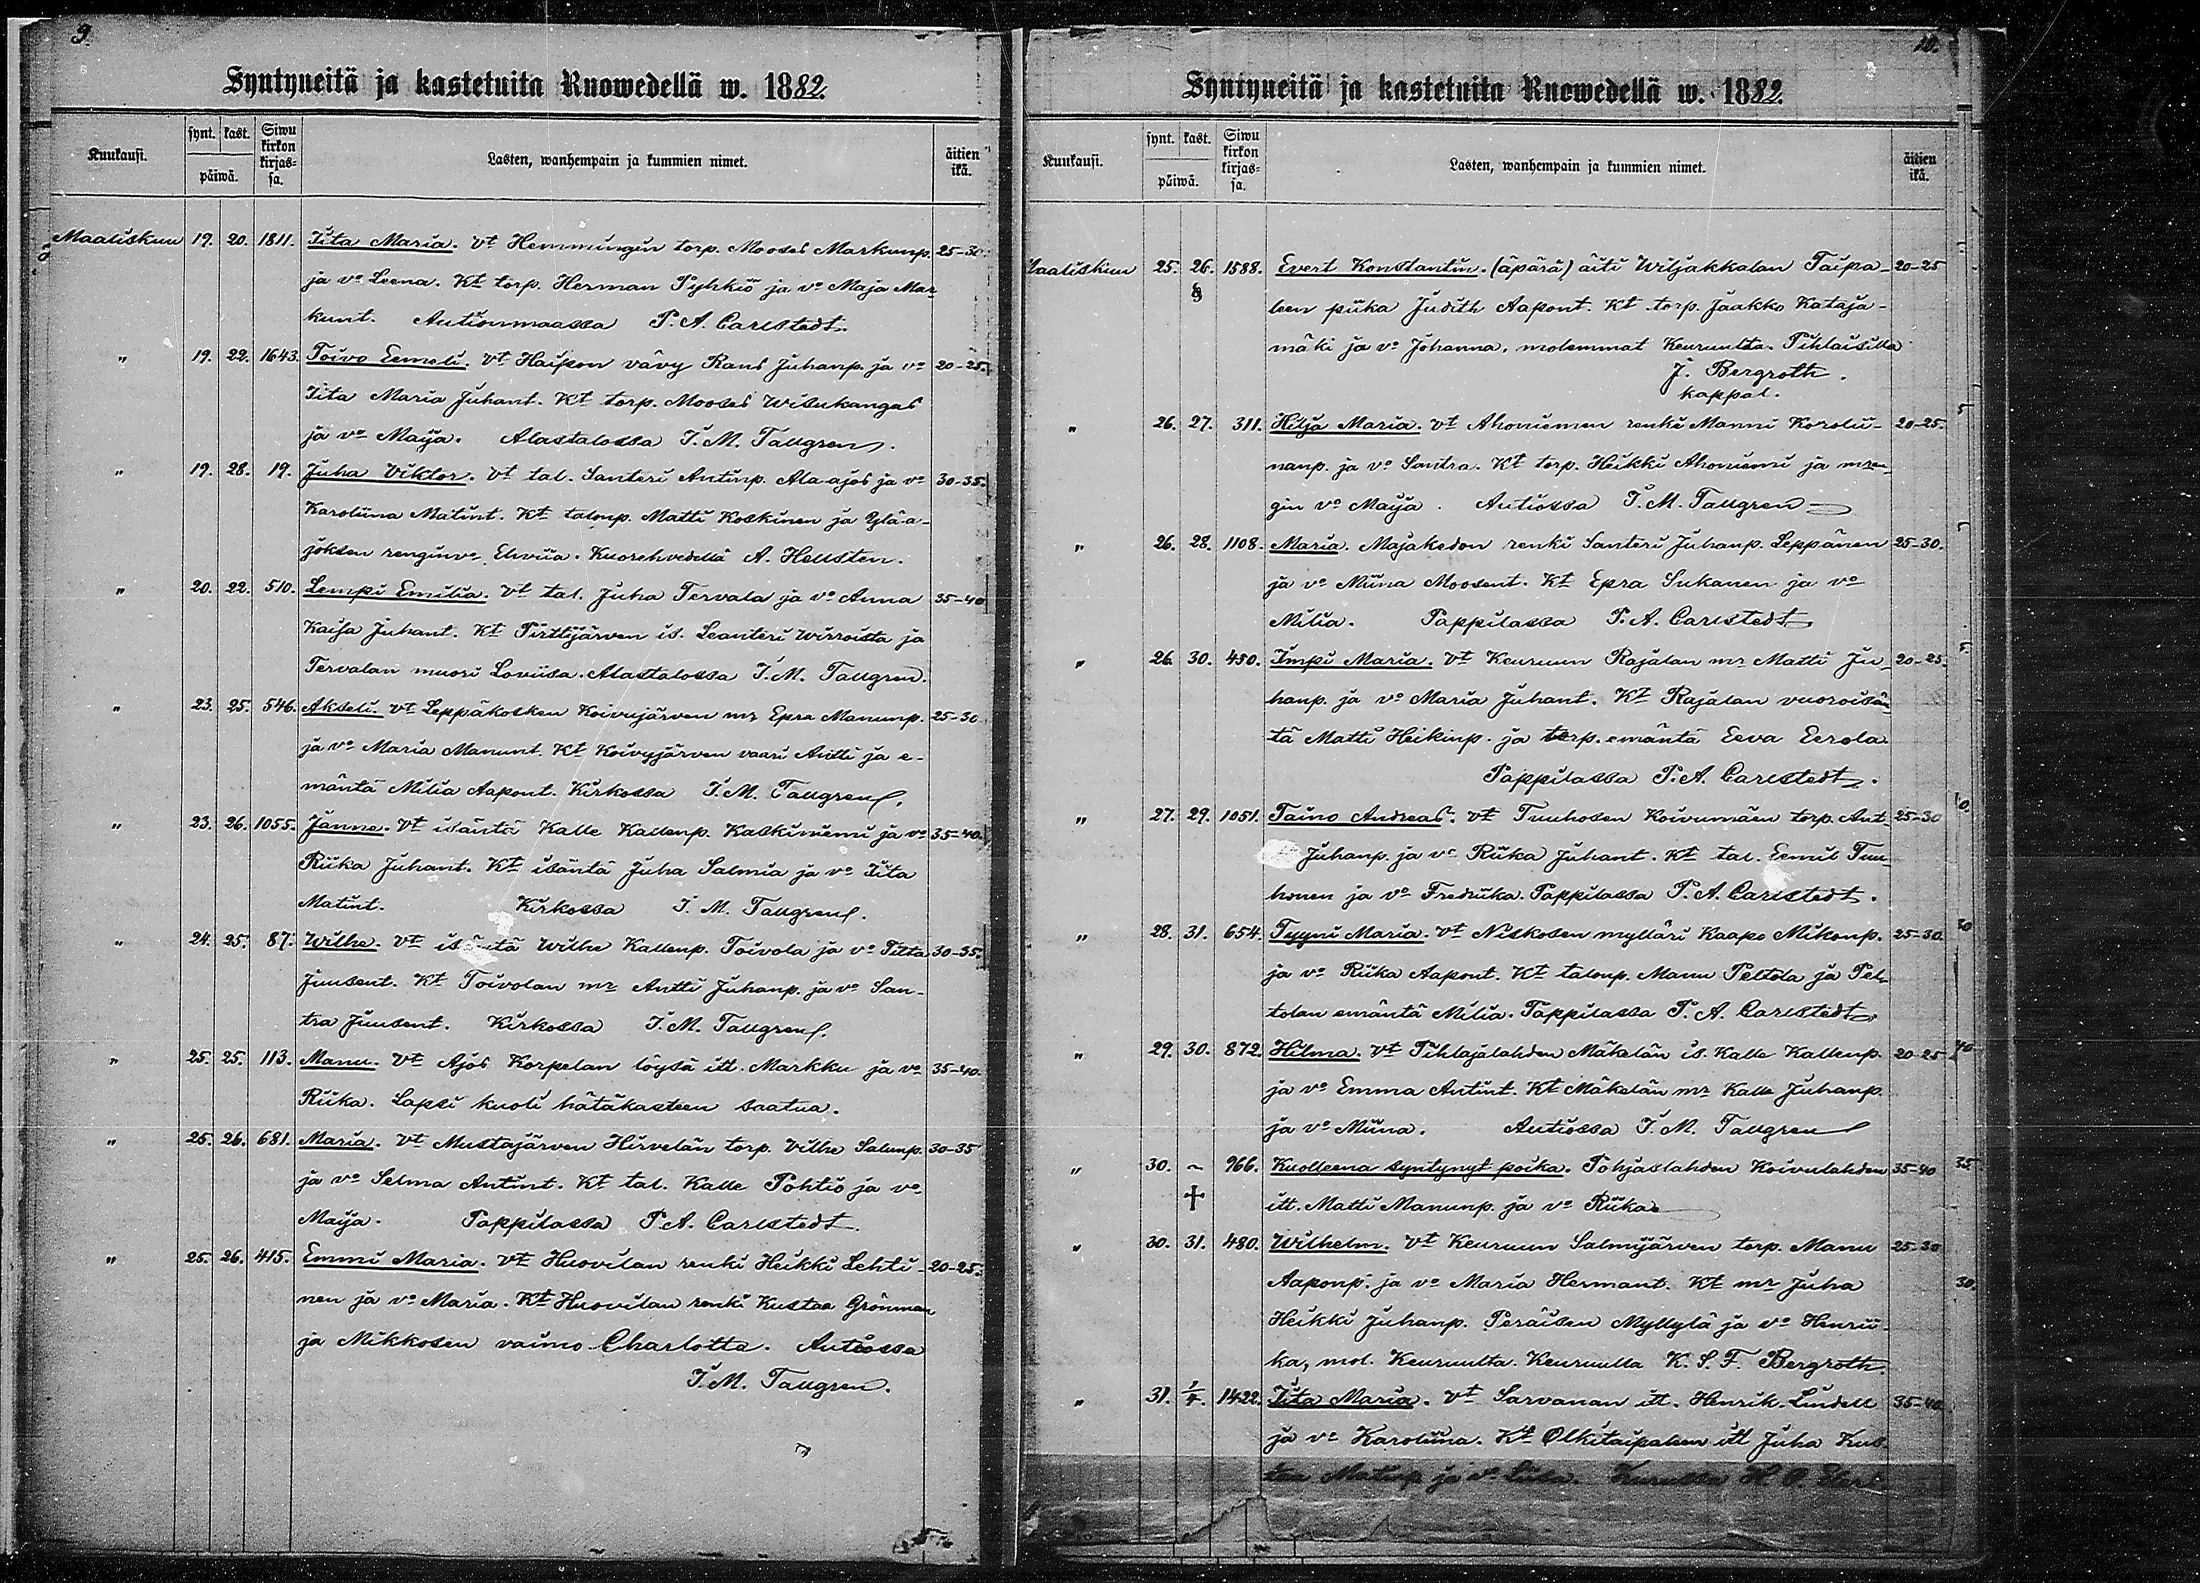 9.
Syntyneitä ja kastetuita Ruowedellä w. 1882.
Kuukausi. synt. kast. päiwä. Siwu kirkon kirjas- sa. Lasten, wanhempain ja kummien nimet. äitien ikä.
Maaliskuu 19. 20. 1811. Iita Maria. Vt Hemmingin torp. Mooses Markunp. 25-30.
ja vo Leena. Kt torp. Herman Pyhkiö ja vo Maja Mar-
kunt. Autionmaassa P. A. Carlstedt.
" 19. 22. 1643. Toivo Eemeli. Vt Haipon vävy Rans Juhanp. ja vo 20-25.
Iita Maria Juhant. Kt torp. Mooses Wisukangas
ja vo Maija. Alastalossa I. M. Tallgren.
" 19. 28. 19. Juha Viktor. Vt tal. Santeri Antinp. Ala-ajos ja vo 30-35.
Karoliina Matint. Kt talonp. Matti Koskinen ja Ylä-a-
joksen renginvo Elviia. Kuorehvedellä A. Hellsten.
" 20. 22. 510. Lempi Emilia. Vt tal. Juha Tervala ja vo Anna 35-40
Kaisa Juhant. Kt Pirttijärven is. Leanteri Wirroista ja
Tervalan muori Loviisa. Alastalossa I. M. Tallgren.
" 23. 25. 546. Akseli. Vt Leppäkosken Koivujärven mr Epra Manunp. 25-30
ja vo Maria Manunt. Kt Koivujärven vaari Antti ja e-
mäntä Milia Aapont. Kirkossa I. M. Tallgren.
" 23. 26. 1055. Janne. Vt isäntä Kalle Kallenp. Kaskiniemi ja vo 35-40.
Riika Juhant. Kt isäntä Juha Salmia ja vo Iita
Matint. Kirkossa I. M. Tallgren.
" 24. 25. 87. Wilhe. Vt isäntä Wilhe Kallenp. Toivola ja vo Iita 30-35.
Juusent. Kt Toivolan mr Antti Juhanp. ja vo San-
tra Juusent. Kirkossa I. M. Tallgren.
" 25. 25. 113. Manu. Vt Ajos Korpelan löysä itt. Markku ja vo 35-40.
Riika. Lapsi kuoli hätäkasteen saatua.
" 25. 26. 681. Maria. Vt Mustajärven Hirvelän torp. Vilhe Salunp. 30-35
ja vo Selma Antint. Kt tal. Kalle Pohtio ja vo
Maija. Pappilassa P. A. Carlstedt.
" 25. 26. 415. Emmi Maria. Vt Huovilan renki Heikki Lehti- 20-25.
nen ja vo Maria. Kt Huovilan renki Kustaa Grönman
ja Mikkosen vaimo Charlotta. Autiossa
I. M. Tallgren.
10.
Syntyneitä ja kastetuita Ruowedellä w. 1882.
Kuukausi. synt. kast. päiwä. Siwu kirkon kirjas- sa. Lasten, wanhempain ja kummien nimet. äitien ikä.
Maaliskuu 25. 26. 1588. Evert Konstantin. (äpärä) äiti Wiljakkalan Taipa- 20-25
leen piika Judith Aapont. Kt torp. Jaakko Kataja-
mäki ja vo Johanna, molemmat Keuruulta. Pihlaisilla
J. Bergroth.
kappal.
" 26. 27. 311. Hilja Maria. Vt Ahoniemen renki Manni Korolii- 20-25.
nanp. ja vo Santra. Kt torp. Heikki Ahoniemi ja mren-
gin vo Maija. Autiossa I. M. Tallgren
" 26. 28. 1108. Maria. Majakedon renki Santeri Juhanp. Leppänen 25-30.
ja vo Miina Moosent. Kt Epra Sukanen ja vo
Milia. Pappilassa P. A. Carlstedt
" 26. 30. 450. Impi Maria. Vt Keuruun Rajalan mr Matti Ju- 20-25.
hanp. ja vo Maria Juhant. Kt Rajalan vuoroisän-
tä Matti Heikinp. ja torp. emäntä Eeva Eerola
Pappilassa P. A. Carlstedt.
" 27. 29. 1051. Taino Andreas. Vt Tuuhosen Koivumäen torp. Ant- 25-30
Juhanp. ja vo Riika Juhant. Kt tal. Eemil Tuu-
honen ja vo Fredriika. Pappilassa P. A. Carlstedt.
" 28. 31. 654. Tyyni Maria. Vt Niskosen mylläri Kaapo Mikonp. 25-30.
ja vo Riika Aapont. Kt talonp. Manu Peltola ja Pel-
tolan emäntä Milia. Pappilassa P. A. Carlstedt
" 29. 30. 872. Hilma. Vt Pihlajalahden Mäkelän is. Kalle Kallenp. 20-25
ja vo Emma Antint. Kt Mäkelän mr Kalle Juhanp.
ja vo Miina. Autiossa I. M. Tallgren
" 30. ~ 966. Kuolleena syntynyt poika. Pohjaslahden Koivulahden 35-40
✝ itt. Matti Manunp. ja vo Riika
" 30. 31. 480. Wilhelm. Vt Keuruun Salmijärven torp. Manu 25-30
Aaponp. ja vo Maria Hermant. Kt mr Juha
Heikki Juhanp. Peräisen Myllylä ja vo Henrii-
ka, mol. Keuruulta. Keuruulla K. S. F. Bergroth.
" 31. 1/4. 1422. Iita Maria. Vt Sarvanan itt. Henrik Lindell 35-40
ja vo Karoliina. Kt Olkitaipaleen itt Juha Kus-
taa Matinp ja vo Liisa. Kurulla H. O.